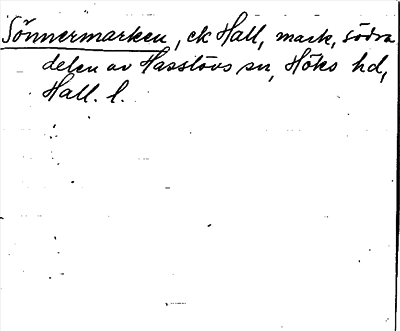 Sönnermarken, ek Hall, mark, södra
delen av Hasslövs sn, Höks hd,
Hall. l.